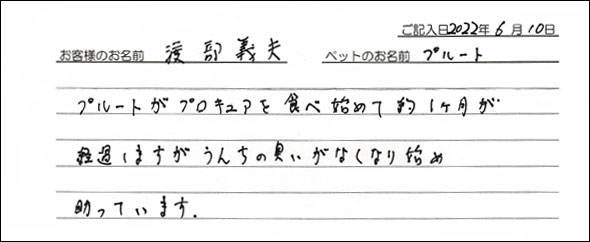 ご記入日2022年6月10日
お客様のお名前 渡部義夫 ペットのお名前 プルート
プルートがプロキュアを食べ始めて約1ヶ月が
経過しますがうんちの臭いがなくなり始め
助っています.